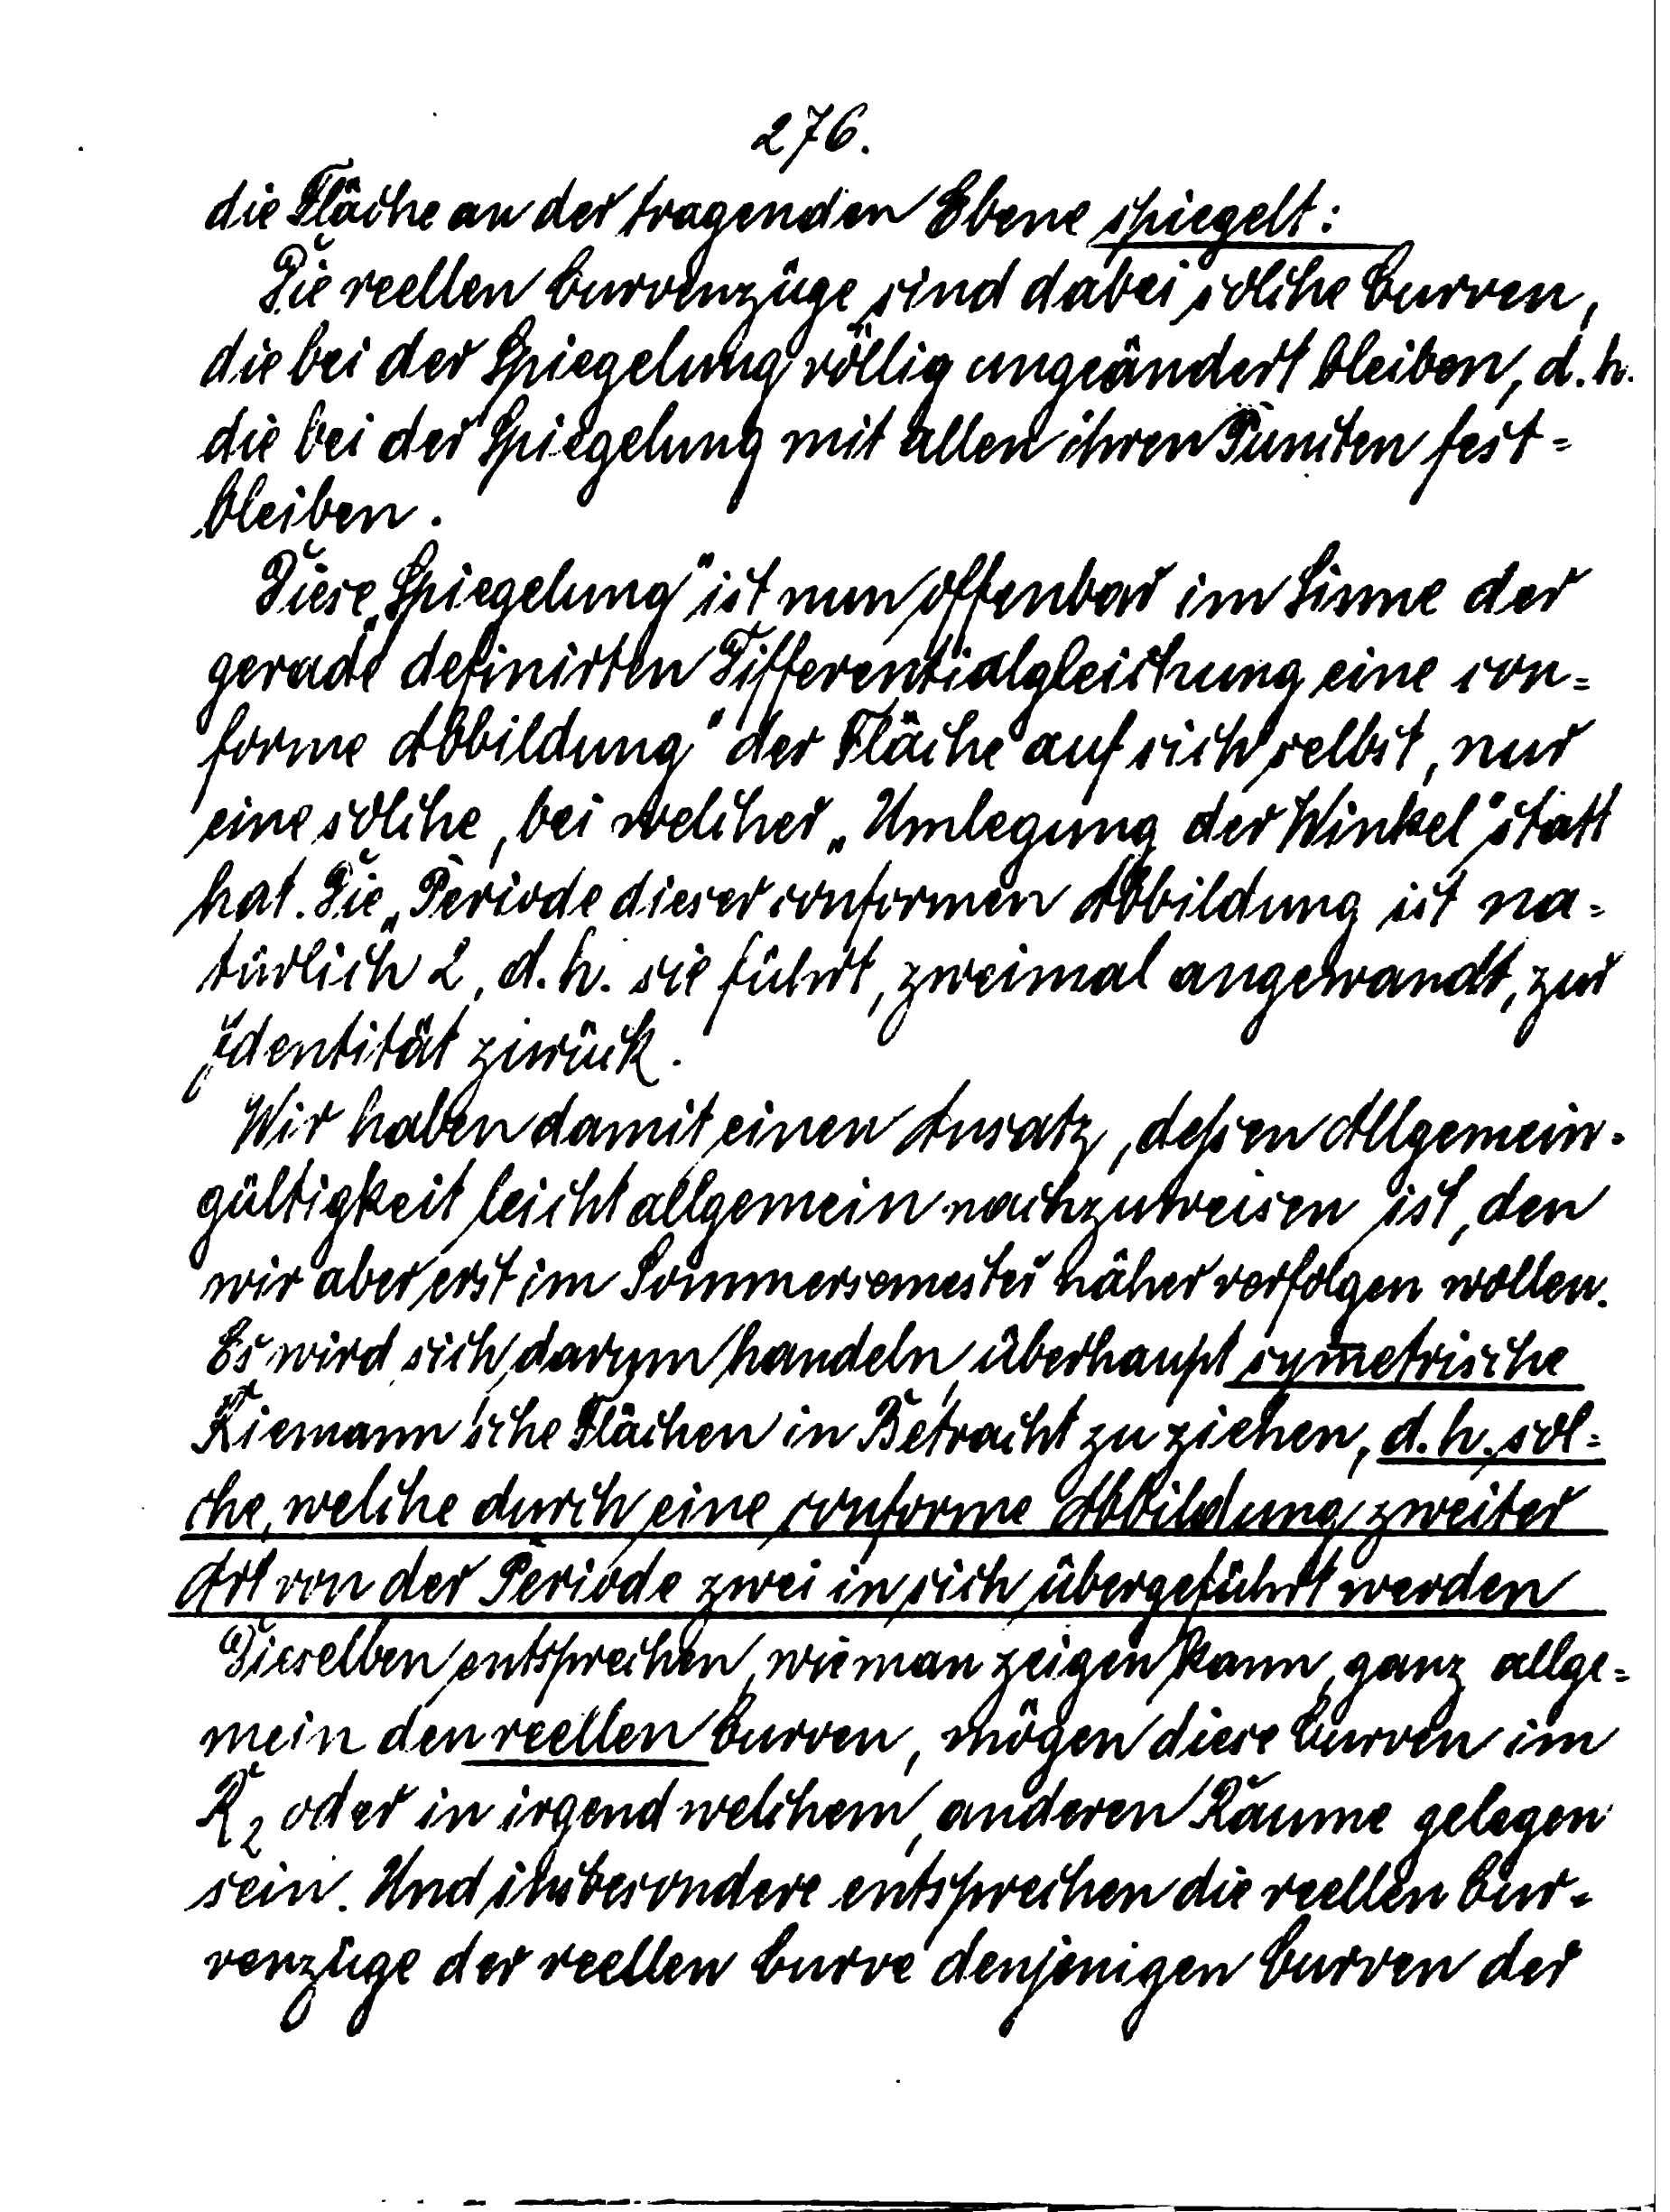 276.
die Fläche an der tragenden Ebene spiegelt:
Die reellen Curvenzüge sind dabei solche Curven,
die bei der Spiegelung völlig ungeändert bleiben, d. h.
die bei der Spiegelung mit allen ihren Puncten fest=
bleiben.
Diese „Spiegelung" ist nun offenbar im Sinne der
gerade definirten Differentialgleichung eine „con=
forme Abbildung" der Fläche auf sich selbst, nur
eine solche, bei welcher „Umlegung der Winkel" statt
hat. Die „Periode dieser conformen Abbildung ist na=
türlich 2, d. h. sie führt, zweimal angewandt, zur
Identität zurück.
Wir haben damit einen Ansatz, dessen Allgemein-
gültigkeit leicht allgemein nachzuweisen ist, den
wir aber erst im Sommersemester näher verfolgen wollen.
Es wird sich darum handeln, überhaupt sym̅etrische
Riemann'sche Flächen in Betracht zu ziehen, d. h. sol=
che, welche durch eine conforme Abbildung zweiter
Art von der Periode zwei in sich übergeführt werden
Dieselben entsprechen, wie man zeigen kann, ganz allge=
mein den reellen Curven, mögen diese Curven im
R₂ oder in irgend welchem anderen Raume gelegen
sein. Und insbesondere entsprechen die reellen Cur-
venzüge der reellen Curve denjenigen Curven der